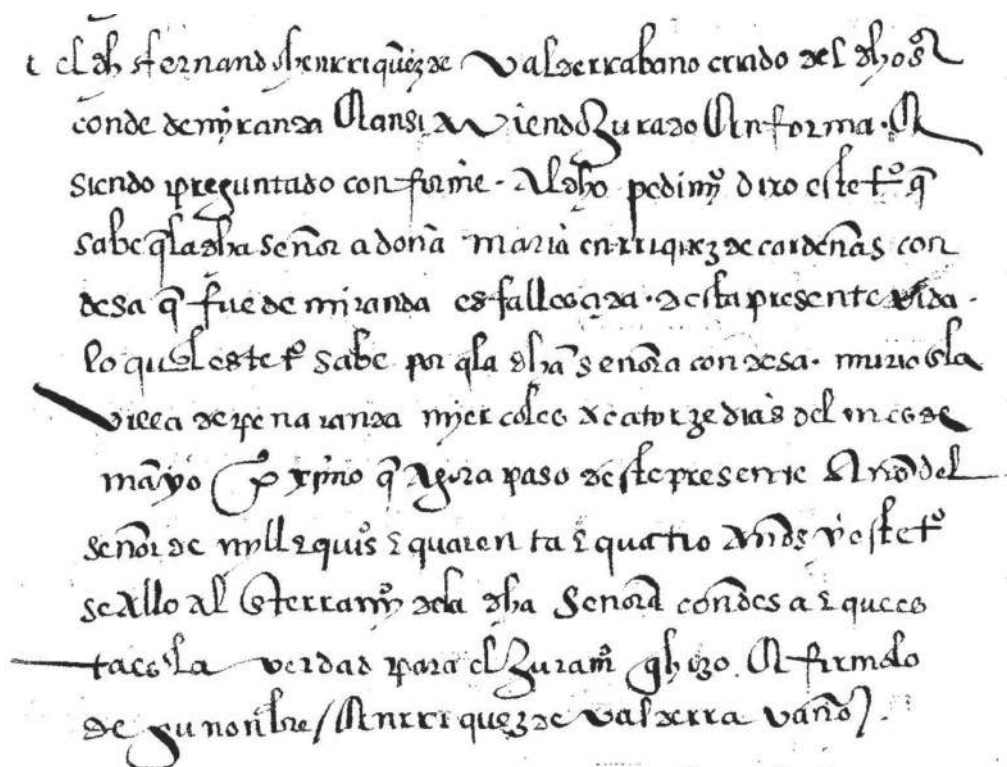 t el dho fernando henrriquez de valderrabano criado del dho sr
conde de miranda e ansi aviendo jurado en forma. e
siendo preguntado conforme. al dho pedimyo dixo este to q
sabe q la dha señora doña maria enrriquez de cardenas con
desa q fue de miranda es fallesçida. desta presente vida.
lo qual este to sabe por q la dha señora condesa. murio en la
villa de peñaranda myercoles a catorze dias del mes de
mayo proximo q agora paso deste presente año del
señor de myll e quis e quarenta e quatro años y este to
se allo al enterramyo de la dha señora condesa e que es
ta es la verdad para el juramo q hizo. e firmolo
de su nonbre / enrriquez de valderravano